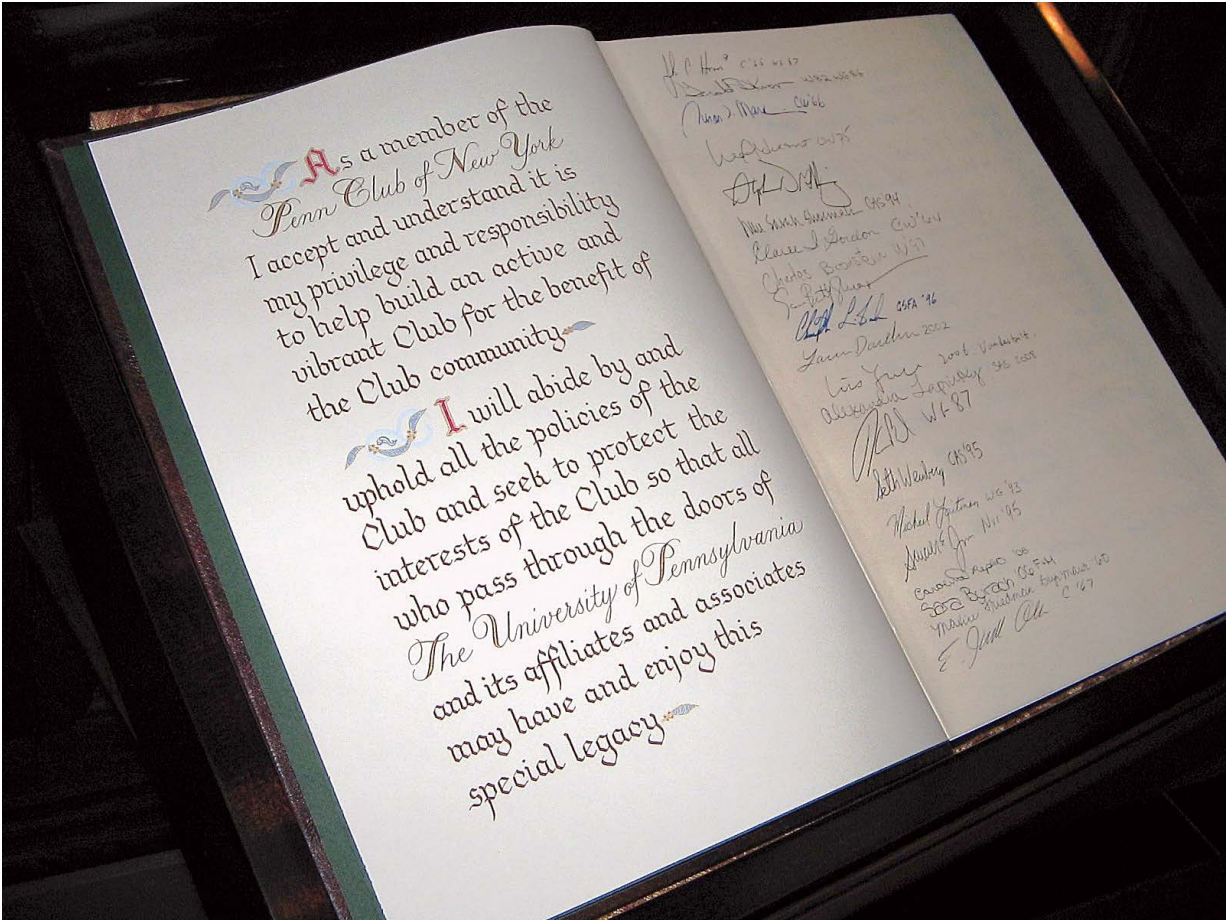 As a member of the
Penn Club of New York
I accept and understand it is
my privilege and responsibility
to help build an active and
vibrant Club for the benefit of
the Club community
I will abide by and
uphold all the policies of the
Club and seek to protect the
interests of the Club so that all
who pass through the doors of
The University of Pennsylvania
and its affiliates and associates
may have and enjoy this
special legacy
C'66
WG86
CW'66
CW75
Sarah CAS 94
Claire I Gordon CW'64
Charles
GSFA '96
Lauren 2002
2006 Vanderbilt
Alexandra SAS 2008
WG 87
Seth Weinberg CAS'95
Michael WG '93
'95
'08
Sara '06
Friedman '60
E. C '67